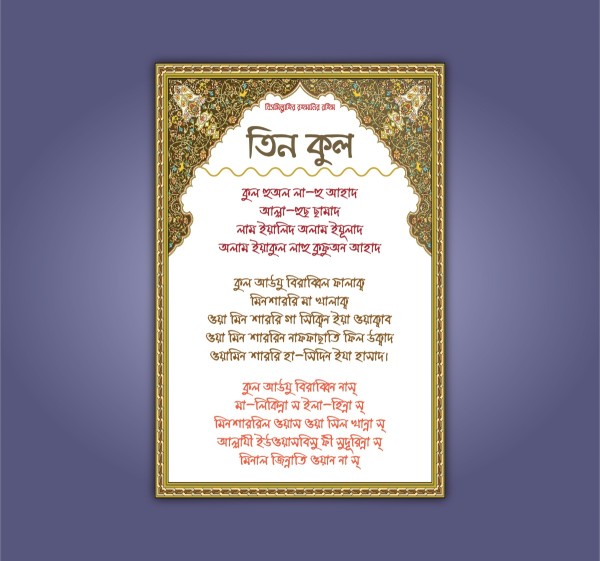 বিসমিল্লাহির রহমানির রহিম
তিন কুল
কুল হুঅল লা-হু আহাদ
আল্লা-হুছ ছামাদ
লাম ইয়ালিদ অলাম ইয়ূলাদ
অলাম ইয়াকুল লাহু কুফুঅন আহাদ
কুল আউযু বিরাব্বিল ফালাক্ব
মিনশাররি মা খালাক্ব
ওয়া মিন শাররি গা সিক্বিন ইযা ওয়াক্বাব
ওয়া মিন শাররিন নাফফাছাতি ফিল উক্বাদ
ওয়ামিন শাররি হা-সিদিন ইযা হাসাদ।
কুল আউযু বিরাব্বিন নাস্
মা-লিকিন্না স ইলা-হিন্না স্
মিনশাররিল ওয়াস ওয়া সিল খান্না স্
আল্লাযী ইউওয়াসবিসু ফী সুদূরিন্না স্
মিনাল জিন্নাতি ওয়ান না স্